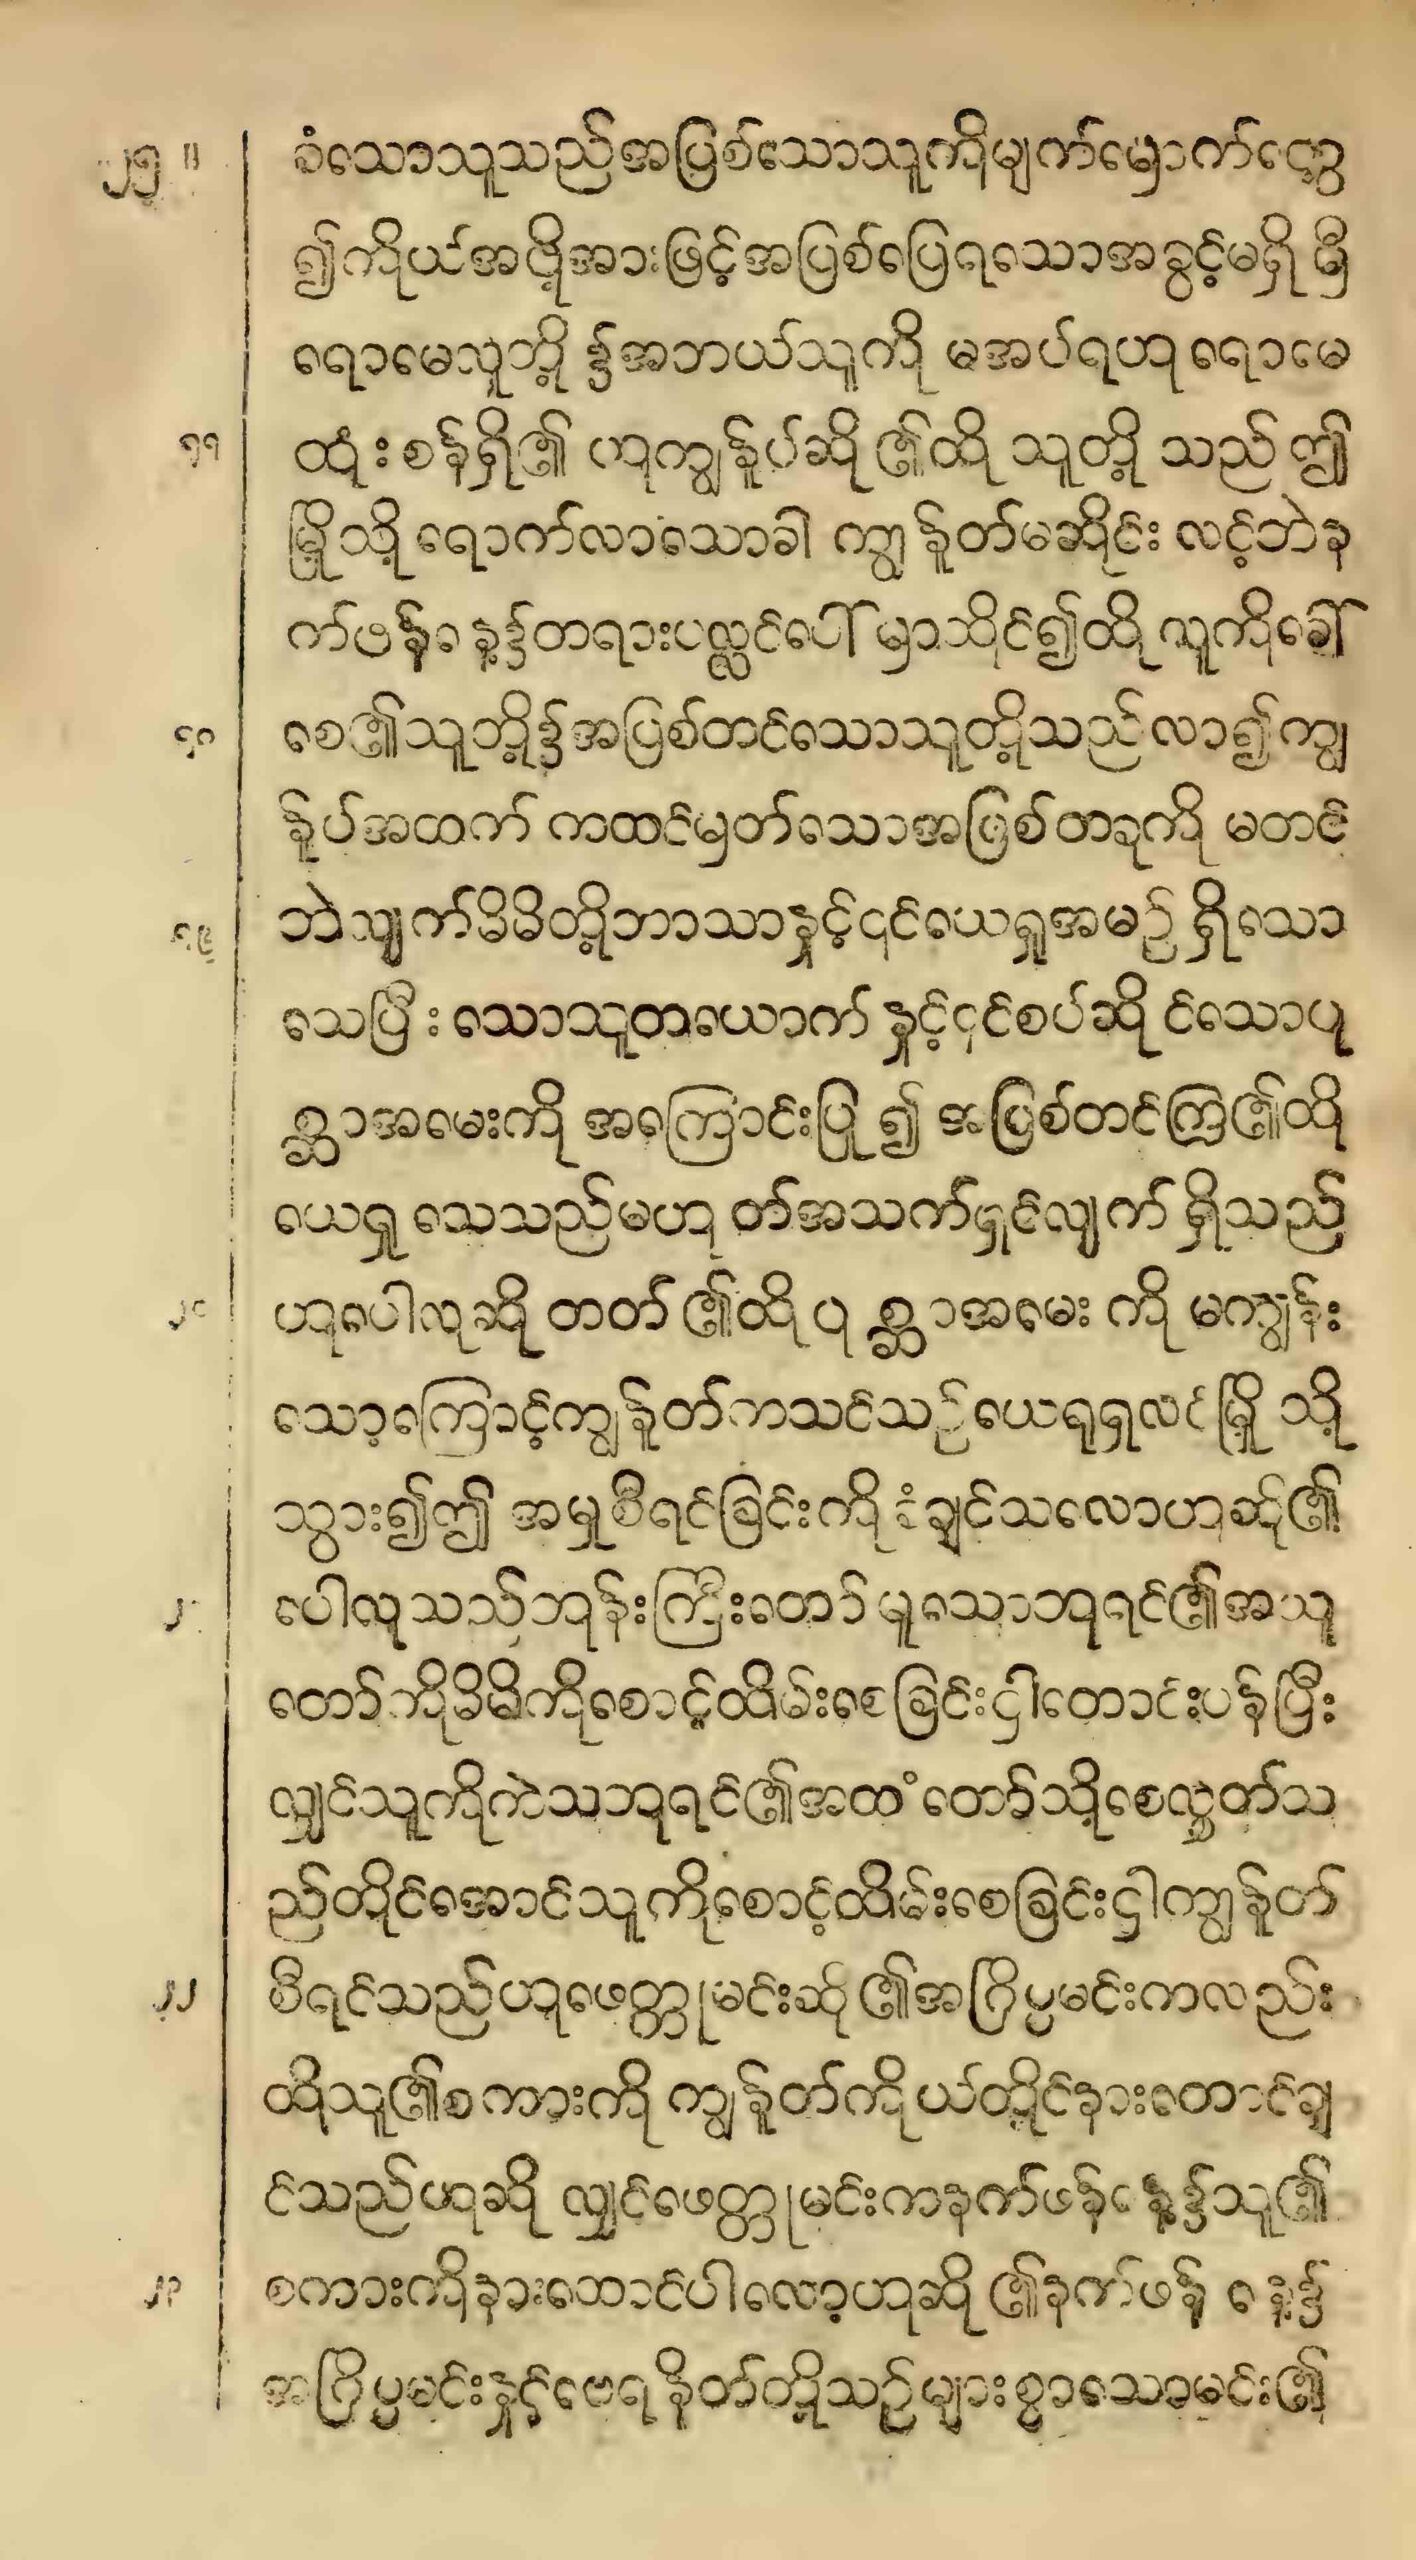 ၂၅ ။ ခံသောသူသည်အပြစ်သောသူကိုမျက်မှောက်တွေ့
၍ကိုယ်အဖို့အားဖြင့်အပြစ်ပြေရသောအခွင့်မရှိ မှီ
ရောမေလူတို့ ၌အဘယ်သူကို မအပ်ရဟု ရောမေ
၁၇ ထုံးစန်ရှိ၏ ဟုကျွန်ုပ်ဆို ၏ထို သူတို့ သည် ဤ
မြို့သို့ ရောက်လာသောခါ ကျွန်ုတ်မဆိုင်း လင့်ဘဲန
က်ဖန်နေ့၌တရားပလ္လင်ပေါ်မှာထိုင်၍ထို လူကိုခေါ်
၁၈ စေ၏သူတို့၌အပြစ်တင်သောသူတို့သည်လာ၍ကျွ
န်ုပ်အထက် ကထင်မှတ်သောအပြစ်တခုကို မတင်
၁၉ ဘဲလျက်မိမိတို့ဘာသာနှင့်၎င်ယေရှုအမဉ် ရှိသော
သေပြီး သောသူတယောက် နှင့်၎င်စပ်ဆို င်သောပု
စ္ဆာအမေးကို အကြောင်းပြု ၍ အပြစ်တင်ကြ၏ထို
ယေရှု သေသည်မဟု တ်အသက်ရှင်လျက် ရှိသည်
၂၀ ဟုပေါလုဆို တတ် ၏ထို ပု စ္ဆာအမေး ကို မကျွန်း
သော့ကြောင့်ကျွန်ုတ်ကသင်သဉ်ယေရုရှလင်မြို့ သို့
သွား၍ဤ အမှုစီရင်ခြင်းကို ခံချင်သလောဟုဆို၏
၂၁ ပေါလုသည်ဘုန်းကြီးတော် မူသောဘုရင်၏အယူ
တော်ကိုမိမိကိုစောင့်ထိမ်းစေခြင်းငှါတောင်းပန်ပြီး
လျှင်သူကိုကဲသဘုရင်၏အထံတော်သို့စေလွှတ်သ
ည်တိုင်အောင်သူကိုစောင့်ထိမ်းစေခြင်းငှါကျွန်ုတ်
၂၂ စီရင်သည်ဟုဖေတ္တုမင်းဆို ၏အဂြိပ္ပမင်းကလည်း
ထိုသူ၏စကားကို ကျွန်ုတ်ကိုယ်တိုင်နားထောင်ချ
င်သည်ဟုဆို လျှင်ဖေတ္တုမင်းကနက်ဖန်နေ့၌သူ၏
၂၃ စကားကိုနားထောင်ပါလော့ဟုဆို ၏နက်ဖန် နေ့၌
အဂြိပ္ပမင်းနှင့်ဗေရနိုတ်တို့သဉ်များစွာသောမင်း၏